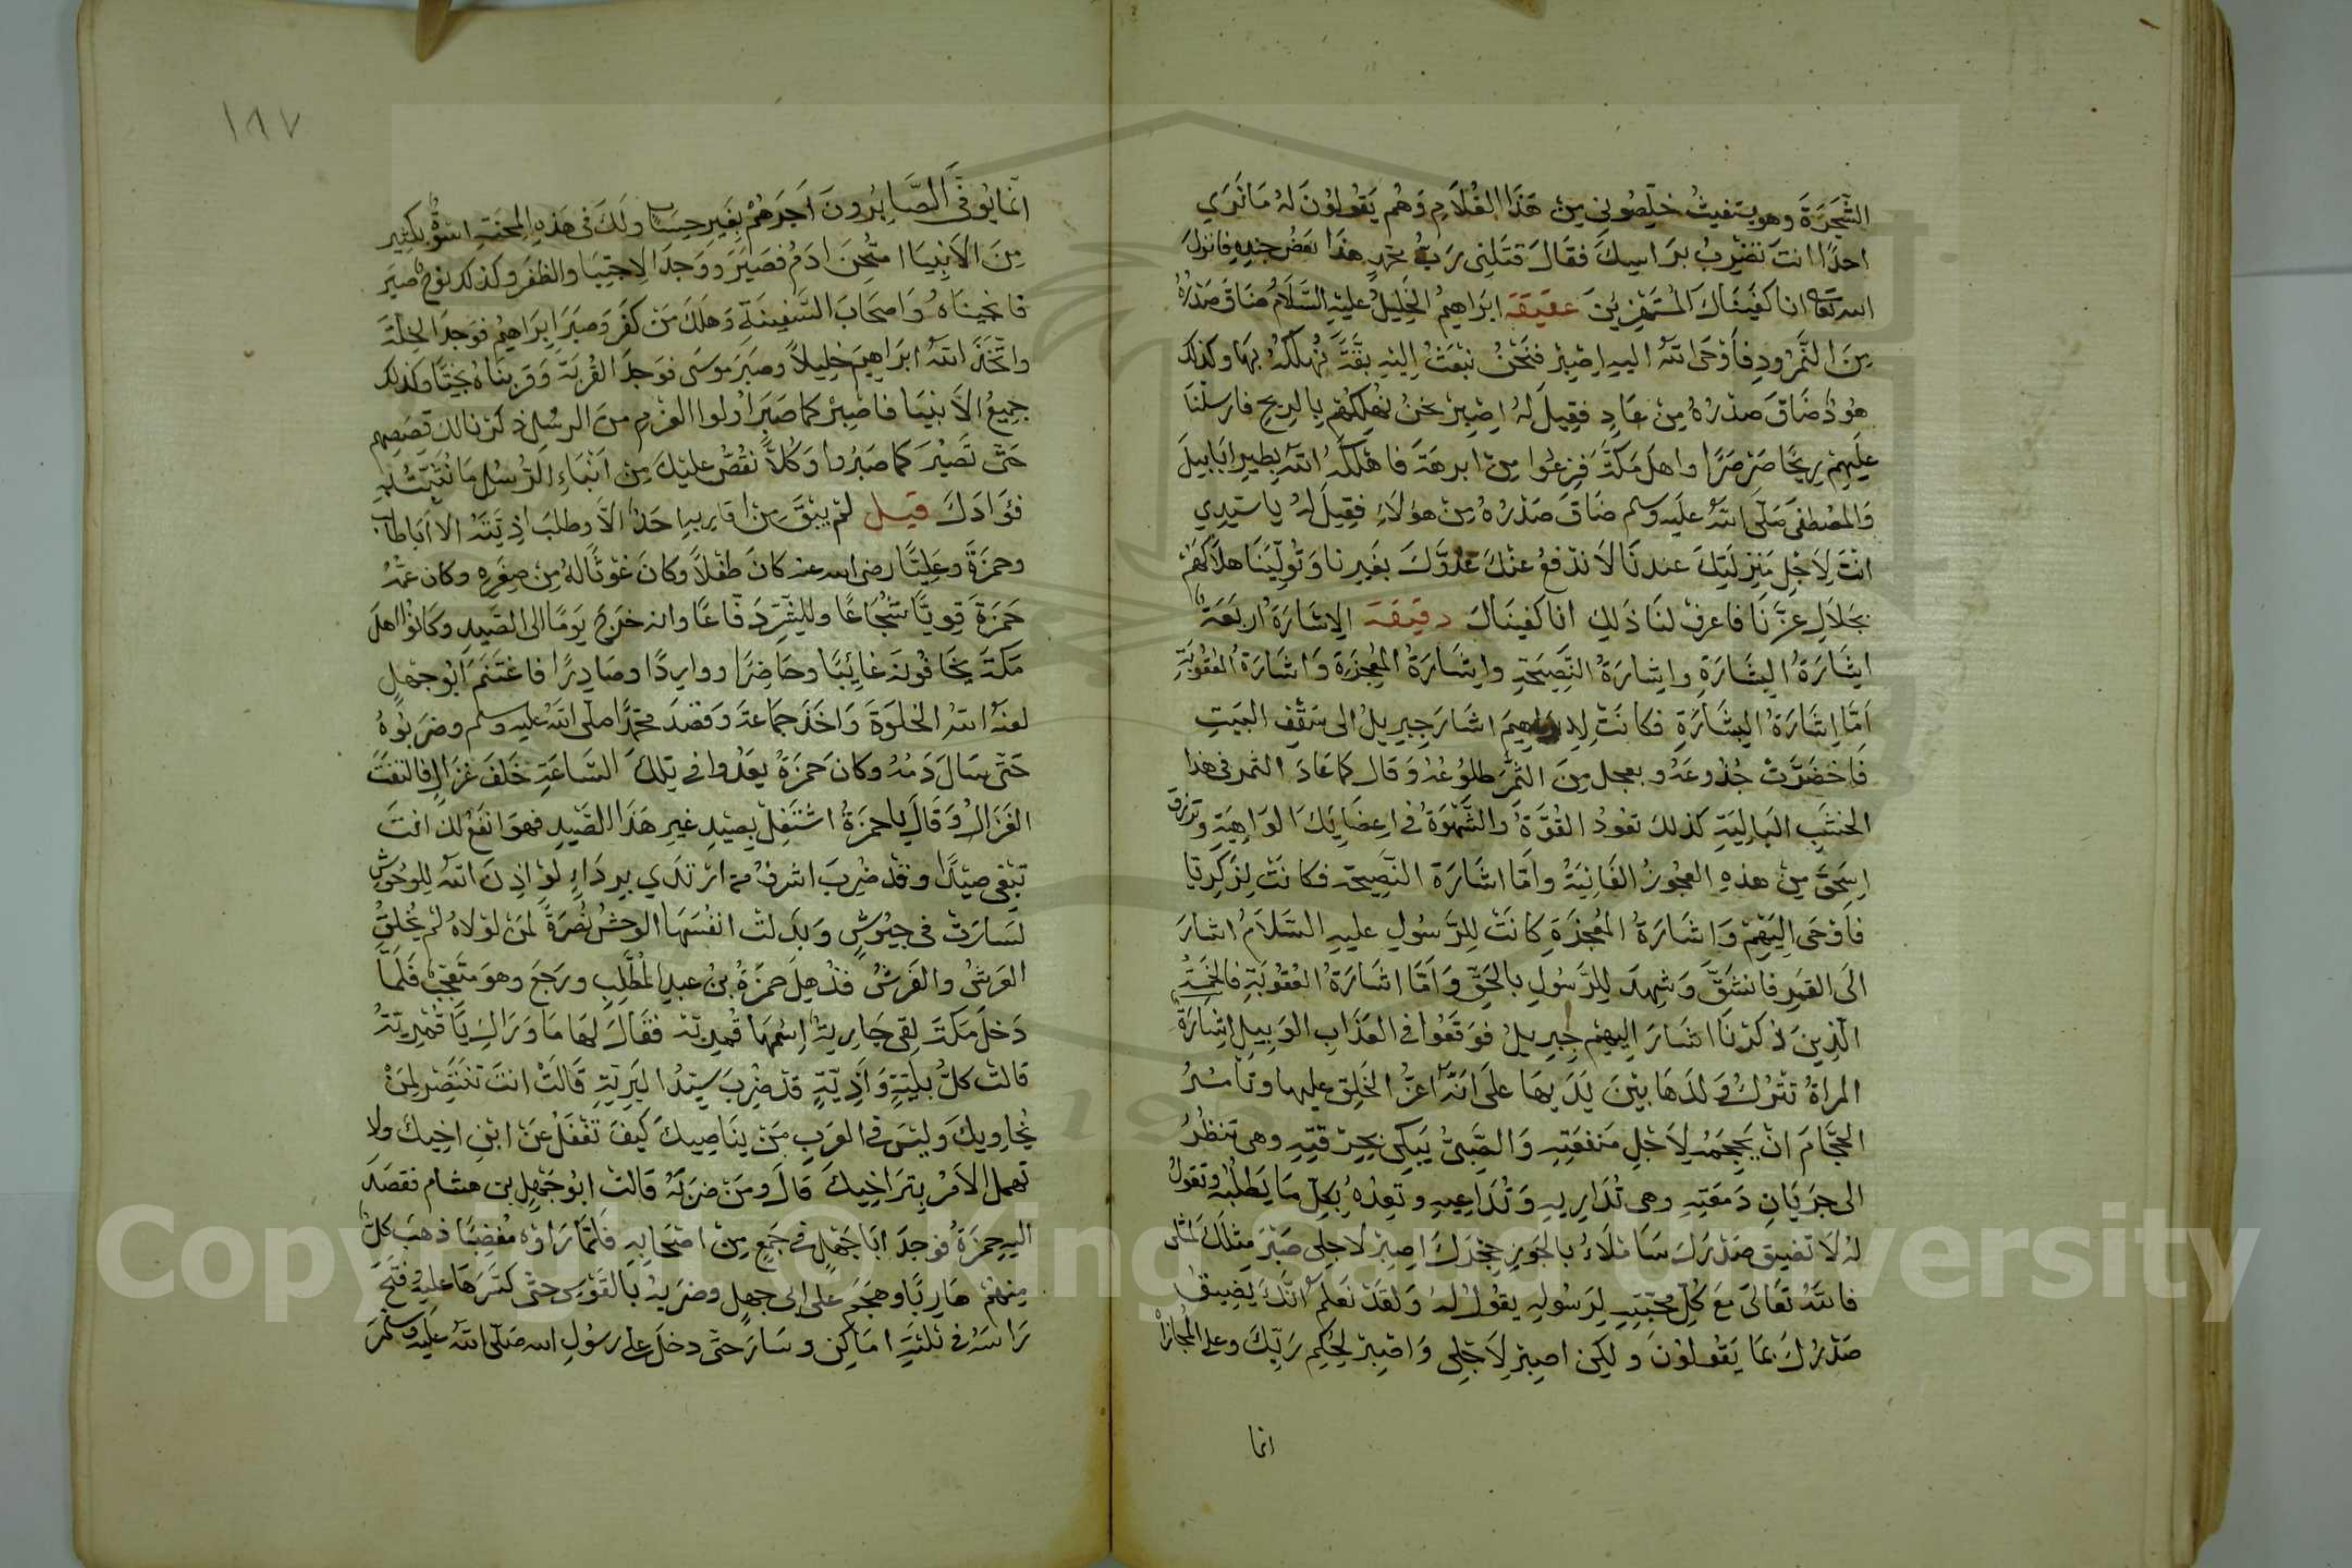 الشَّجَرَةَ وهو يستغيثُ خلِّصُوني مِن هَذَا الغُلَامِ وَهُم يَقُولُونَ لَهُ مَا نَرَى
احدًا انتَ تضْرِبُ برَاسِكَ فقَالَ قتَلنِى رَبُّ محَمَّدٍ هذَا بَعْضُ جندِهِ فانزلَ
الله تعالى انا كفَيْنَاكَ المُسْتَهْزِئينَ عقيقة ابرَاهِيمُ الخَلِيلُ عليهِ السَّلَامُ ضَاقَ صَدْرُهُ
مِنَ النَّمرُودِ فأَوْحَى اللهُ اليهِ اصْبِرْ فنَحْنُ نبْعَثُ اِليْهِ بَقَّةً نُهْلكُهُ بهَا وكذلك
هُودُ ضَاقَ صدْرُهُ مِنْ عَادٍ فقِيلَ لهُ اِصْبِرْ نحنُ نُهْلِكُهُم بالرِيحِ فارسلْنَا
عليهِمْ رِيحًا صَرْصَرًا واهلَ مَكَّةَ فزِعُوا مِنْ ابرهَةَ فاهْلَكَهُ اللهُ بطيرٍ ابَابِيلَ
وَالمصْطفَى صَلَّى اللهُ عليه وسلم ضَاقَ صَدْرُهُ مِنْ هؤلَاءِ فقِيلَ لهُ يا سَيِّدِي
انْتَ لِاَجْلِ مَنزِلَتِكَ عندنَا لَا ندْفعُ عنْكَ عَدُوَّكَ بغَيرِنا وَتُوَلِّينَا هلَاكَهُمْ
بجَلَالِ عزِّنَا فاعرِفْ لنَا ذَلِكَ انا كفيناك دقيقة الاِشَارَةُ اربَعَةٌ
اِشَارَةُ البِشَارَةِ واِشارَةُ النَّصِيحَةِ واِشَارَةُ المُعْجِزَةِ وَاشَارَةُ العُقُوبَةِ
اَمَّا اِشَارَةُ البِشَارَةِ فكانَتْ لِاِبراهِيمَ اشارَ جِبرِيلُ الى سَقْفِ البَيْتِ
فَاخضَرَّتْ جُذوعَهُ وبعجل مِنَ الثَّمَرِ طلُوعُهُ وَقال كمَا عَادَ الثمر في هذا
الخشَبِ البَالِيَةِ كذلكَ تعُودُ القُوَّةُ والشَّهْوَةُ فى اَعضَائِكَ الوَاهِيَةِ وترزق
اِسحَقَ مِنْ هذهِ العجُوزُ الفَانِيَةُ وامَّا اشَارَة النَّصِيحَة فكانتْ لِزَكَرِيَّا
فاَوْحَى اِليْهِمْ وَاشَارَةُ المُعْجِزَةِ كانَتْ لِلرَّسُولِ عليهِ السَّلَامُ اشارَ
الَى القمَرِ فانشَقَّ وَشَهِدَ لِلرَّسُولِ بالحَقِّ وَاَمَّا اشَارَةُ العُقُوبَةِ فالخمْسَةُ
الَّذِينَ ذَكَرْنَا اشَارَ اِليهِمْ جِبرِيلُ فوَقعُوا في العَذَابِ الوَبِيلِ اِشارَةٌ
المرأةُ تتْرُكُ وَلدَهَا بيْنَ يَدَيهَا علَى اَنَّهُ اعزُّ الخَلقِ عليها وتأمُرُ
الحجَّامَ انْ يَحْجِمَهُ لِاَجْلِ مَنفعَتِهِ وَالصَّبِىُّ يَبكِى بحِرْقتِهِ وهى تَنظُرُ
الى جَرَيَانِ دَمعَتِهِ وهى تُدَارِيهِ وَتُدَاعِيهِ وتعِدُهُ بكلِّ مَا يَطلُبُهُ وتقولُ
لهُ لَا تضيق صَدْرَكَ سَامْلَاءُ بالجَوزِ حِجْرَكَ اصبِرْ لاجلِى صَبْرَ مِثلكَ لمثلى
فاللهُ تعَالَى مَعَ كلِّ مُحبَّتِهِ لِرَسُولِهِ يقولُ لهُ وَلقَدْ نَعْلمُ انَّكَ يَضِيقُ
صَدْرُكَ بمَا يَقُولُونَ وَلكِن اصبِرْ لِاَجْلِى وَاصْبِرْ لِحُكمِ رَبِّكَ وعلى المُجَازَاة
انما
١٨٧
انمَا يُوَفَّى الصَّابِرُونَ اَجرَهُمْ بِغَيرِ حِسَابٍ ولَكَ فى هَذِهِ المحنَةِ اسْوَةٌ بكثِير
مِنَ الاَنْبِيَا امتُحِنَ ادَمُ فصَبَرَ وَوَجَدَ الاِجتِبَا والظفَرَ وكذلك نوحٌ صبَرَ
فانجَينَاهُ وَاصحَابَ السَّفِينَةِ وَهَلكَ مَنْ كفَرَ وَصَبَرَ اِبرَاهِيمُ فوَجَدَ الخُلّةَ
واتَّخَذَ اللهُ ابرَاهِيمَ خلِيلاً وصبَرَ مُوسَى فوَجَدَ القُرْبَةَ وَقربْنَاهُ نجِيًّا وكذلك
جمِيعُ الاَنبِيَا فاصْبِرْ كما صَبَرَ اُولوا العَزمِ مِنَ الرسُلِ ذكرنا لك قصَصَهم
حَتّى تَصْبِرَ كما صَبَرُوا وَكُلاًّ نقُصُّ عليْكَ مِنْ اَنْبَاءِ الرُّسُلِ مَا نُثَبِّتُ بِهِ
فؤَادَكَ قيل لَمْ يبْقَ مِنْ اقارِبِهِ احَدٌ الاَّ وطلبَ اذِيَّتَهُ الا اَبَا طالب
وحمزَةَ وعَلِيًّا رضى الله عنه كانَ طفْلاً وَكانَ غوْثًا لهُ مِنْ صِغَرِهِ وكان عمّهُ
حَمزَة قوِيًّا شُجَاعًا ولِلشَّرِّ دَفَّاعًا وانه خَرَجَ يَومًا الى الصَّيدِ وَكانوا اهلَ
مَكةَ يخافُونَهُ غائِبًا وحَاضِرًا ووارِدًا وصَادِرًا فاغتَنَمَ ابُو جهْلٍ
لعنهُ اللهُ الخلوَةَ وَاخَذَ جمَاعَةً وَقصَدَ محَمَّدًا صلى اللهُ عليه وسلم وضرَبُوهُ
حَتّى سَالَ دَمُهُ وكانَ حَمزَةُ يَعدُوا في تِلكَ السَّاعَةِ خَلفَ غزَالٍ فالتفتَ
الغَزَالُ وَقالَ يا حَمزَةُ اشتَغِلْ بصَيدِ غيرِ هَذَا الصَّيدِ فهوَ انفَعُ لكَ انتَ
تبْغِى صيْدًا وقدْ ضُرِبَ اشرَفُ من ارْتَدَى بِردَاءٍ لوْ اذِنَ اللهُ للوحُوشِ
لَسَارَتْ فى جيُوشٍ وَبذَلتْ انفُسَهَا الوحشُ نُصْرَةً لمَنْ لوْلاهُ لمْ يُخلَقِ
العَرشُ والفَرشُ فذُهِلَ حمزَةُ بْنُ عبدِ المُطّلِبِ ورَجَعَ وهوَ متَعَجِّبٌ فلَمَّا
دَخلَ مَكةَ لقِىَ جَارِيةً اِسْمُهَا قُمَيرِيّة فقَالَ لهَا مَا وَرَاكِ يَا قُمَيرِيَّةُ
قالتْ كلُّ بلِيَّةٍ وَاَذِيَّةٍ قد ضُرِبَ سيِّدُ البَرِيَّةِ قَالَتْ انتَ تنْتَصِر لمَنْ
يجاوِيكَ وَليْسَ فى العرَبِ مَنْ يُنَاصِيكَ كيفَ تغْفَلُ عَنِ ابْنِ اخِيكَ ولا
تهمل الاَمْرَ بِتَرَاخِيكَ قالَ وَمَنْ ضرَبَهُ قالتْ ابُو جَهْلِ بن هشام فقصَدَ
اليهِ حمزَةُ فوَجدَ ابَا جَهْلٍ فى جَمعٍ مِنْ اصْحَابِهِ فلمّا رَاوْهُ مُغْضِبًا ذهَبَ كلٌّ
مِنهُمْ هَارِبًا وهَجَمَ عَلى ابى جهل وضرَبهُ بالقَوْسِ حتّى كسَرَهَا عليهِ وفتَحَ
رَاسَهُ فى ثلثَةِ امَاكِن وسَارَ حتَّى دخلَ على رسُولِ الله صَلى اللهُ عَليْهِ وسَلّمَ
Copyright © King Saud University